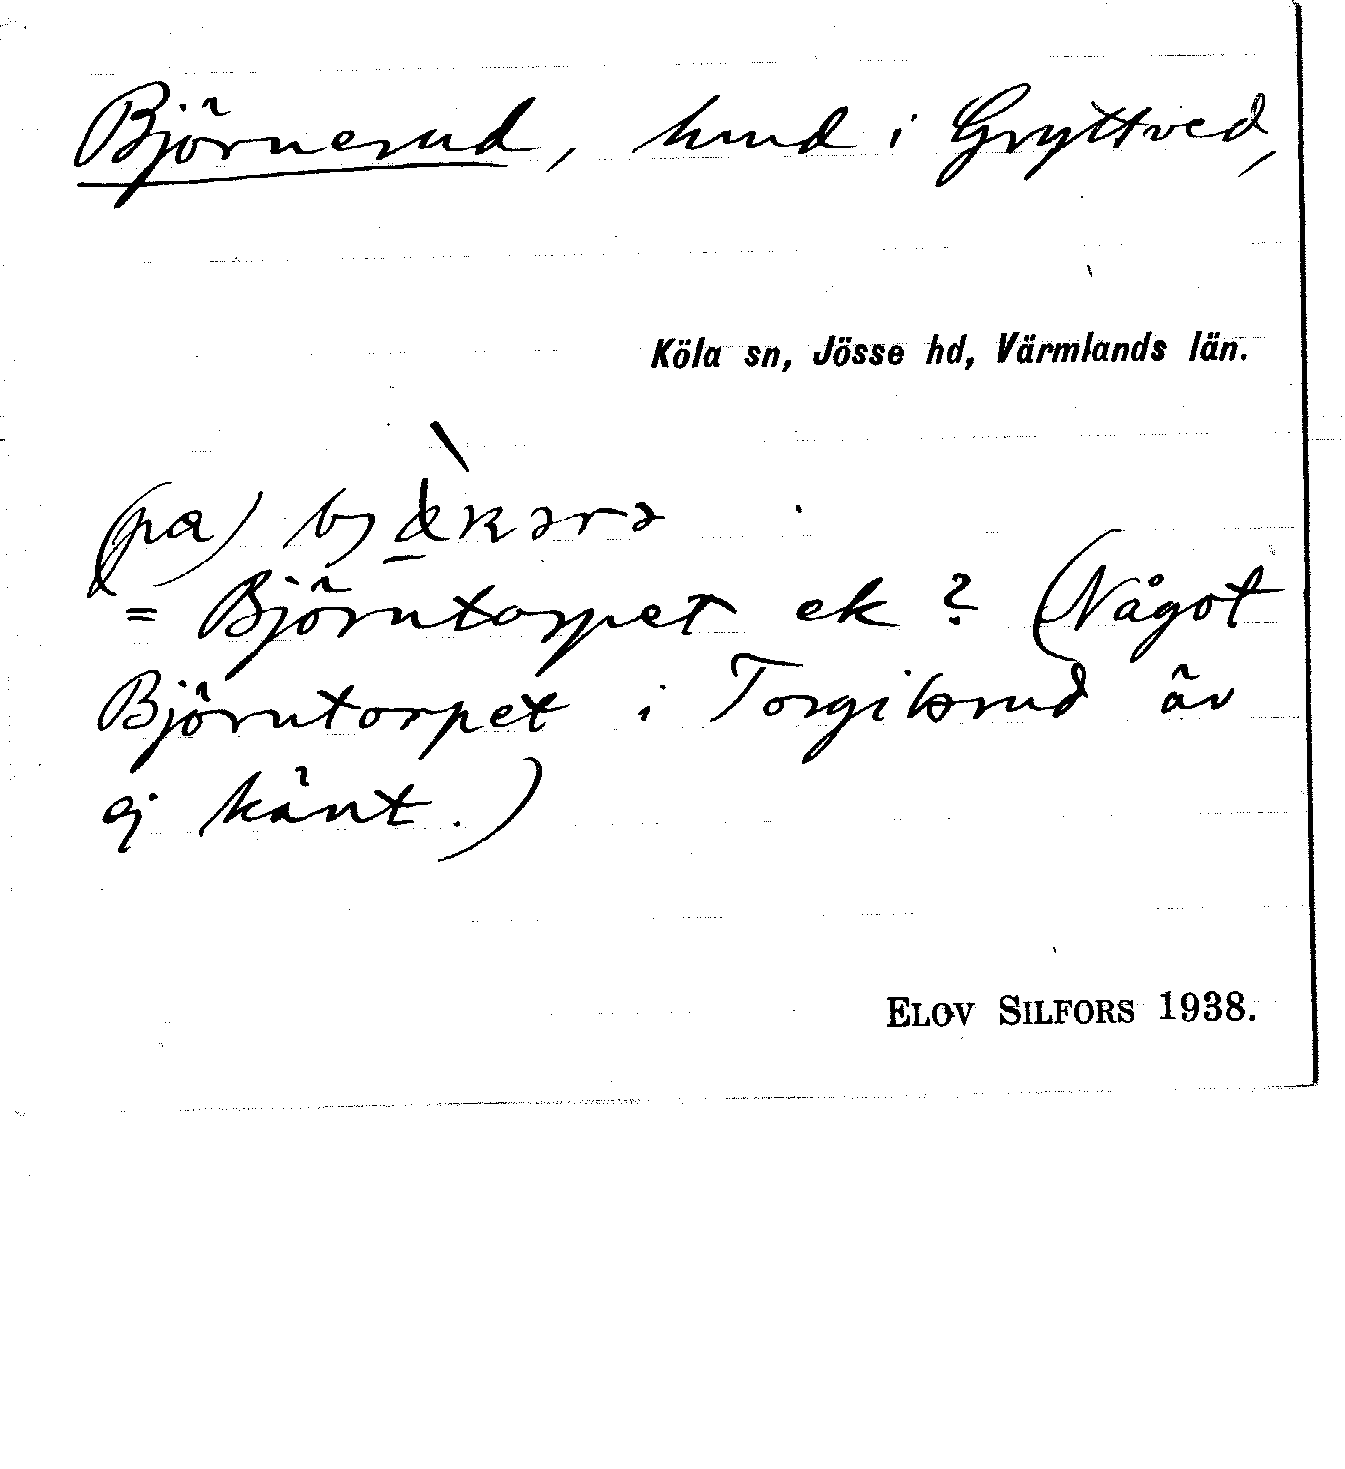 Björnerud, hmd i Gryttved,
Köla sn, Jösse hd, Värmlands län.
(pa)
= Björntorpet ek? (Något
Björntorpet i Torgilsrud äv
ej känt.)
ELOV SILFORS 1938.